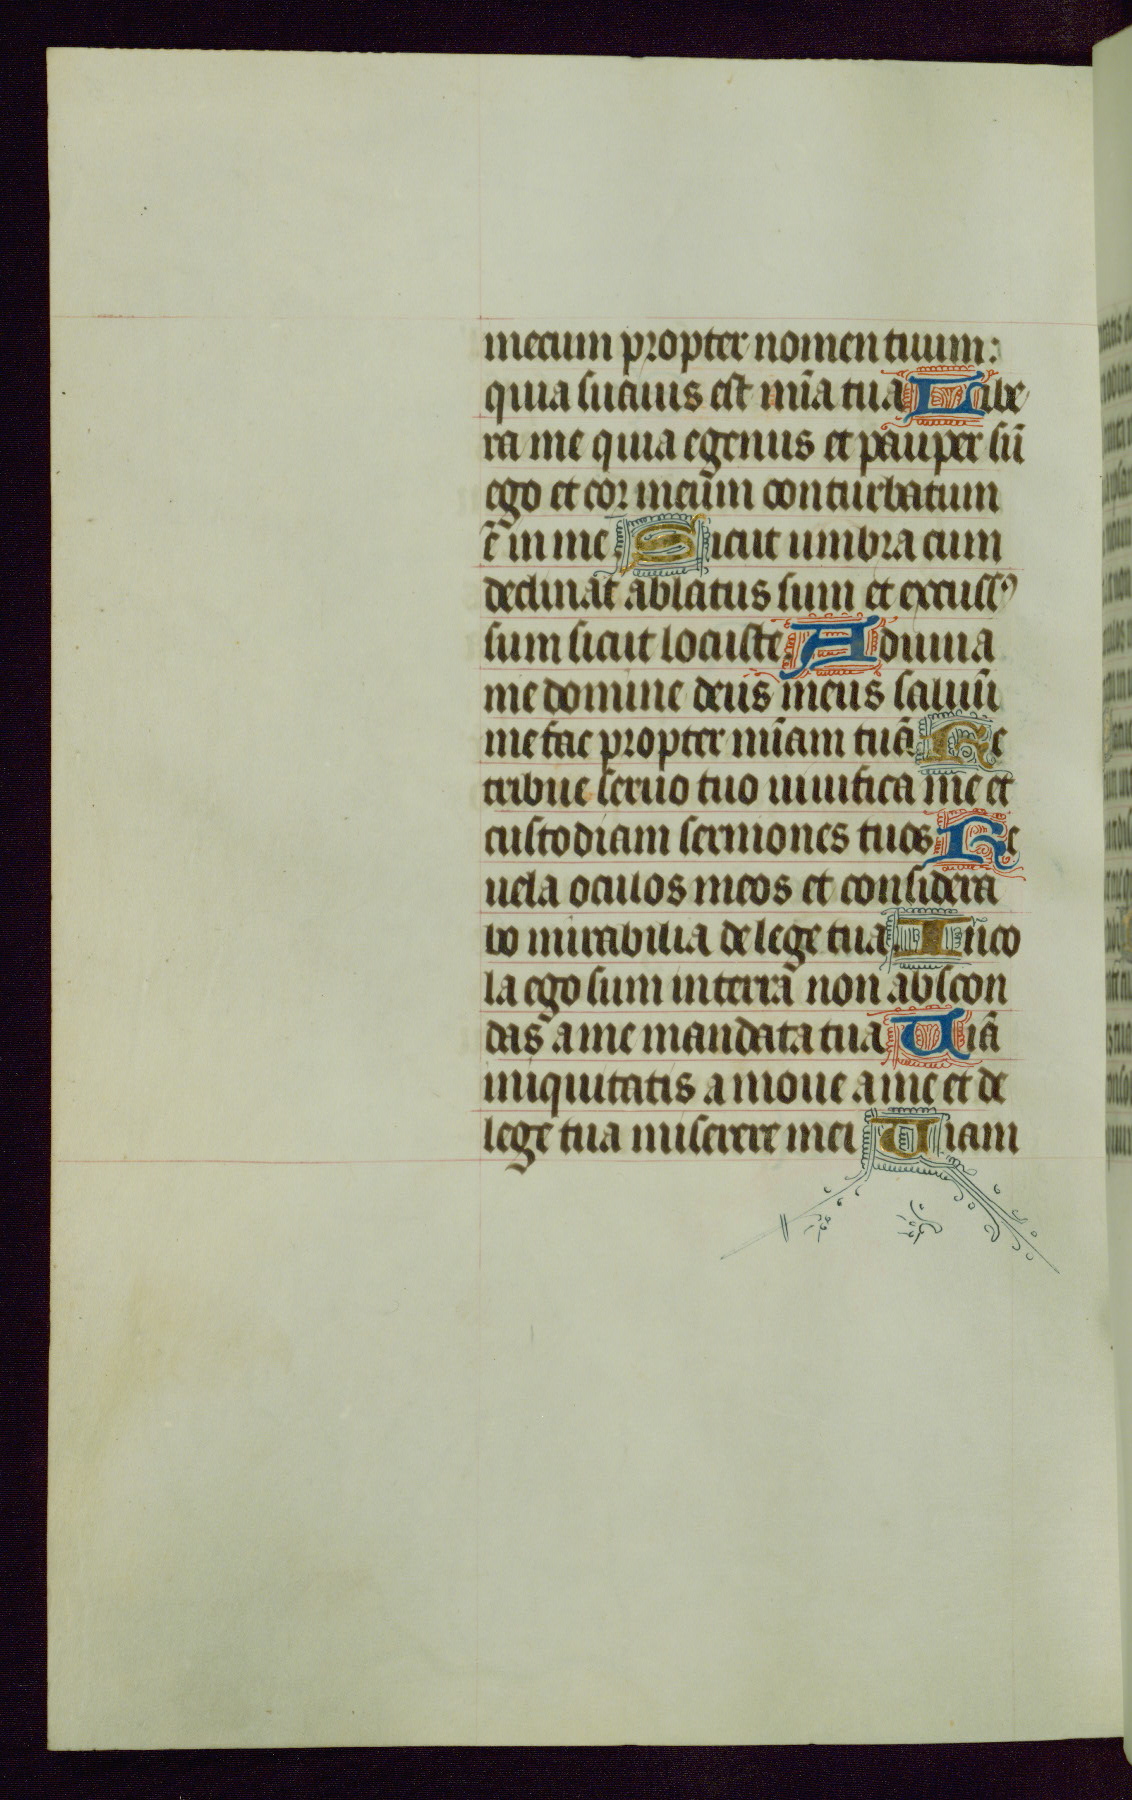 mecum propter nomen tuum:
quia suauis est mīa tua Libe
ra me quia egenus et pauper sū
ego et cor meum conturbatum
ē in me Sicut umbra cum
declinat ablatus sum et excussꝰ
sum sicut locuste Adiuua
me domine deus meus saluū
me fac propter mīam tuā Re
tribue seruo tuo uiuifica me et
custodiam sermones tuos Re
uela oculos meos et considera
bo mirabilia de lege tua Inco
la ego sum in terra non abscon
das a me mandata tua Uiā
iniquitatis amoue a me et de
lege tua miserere mei Uiam